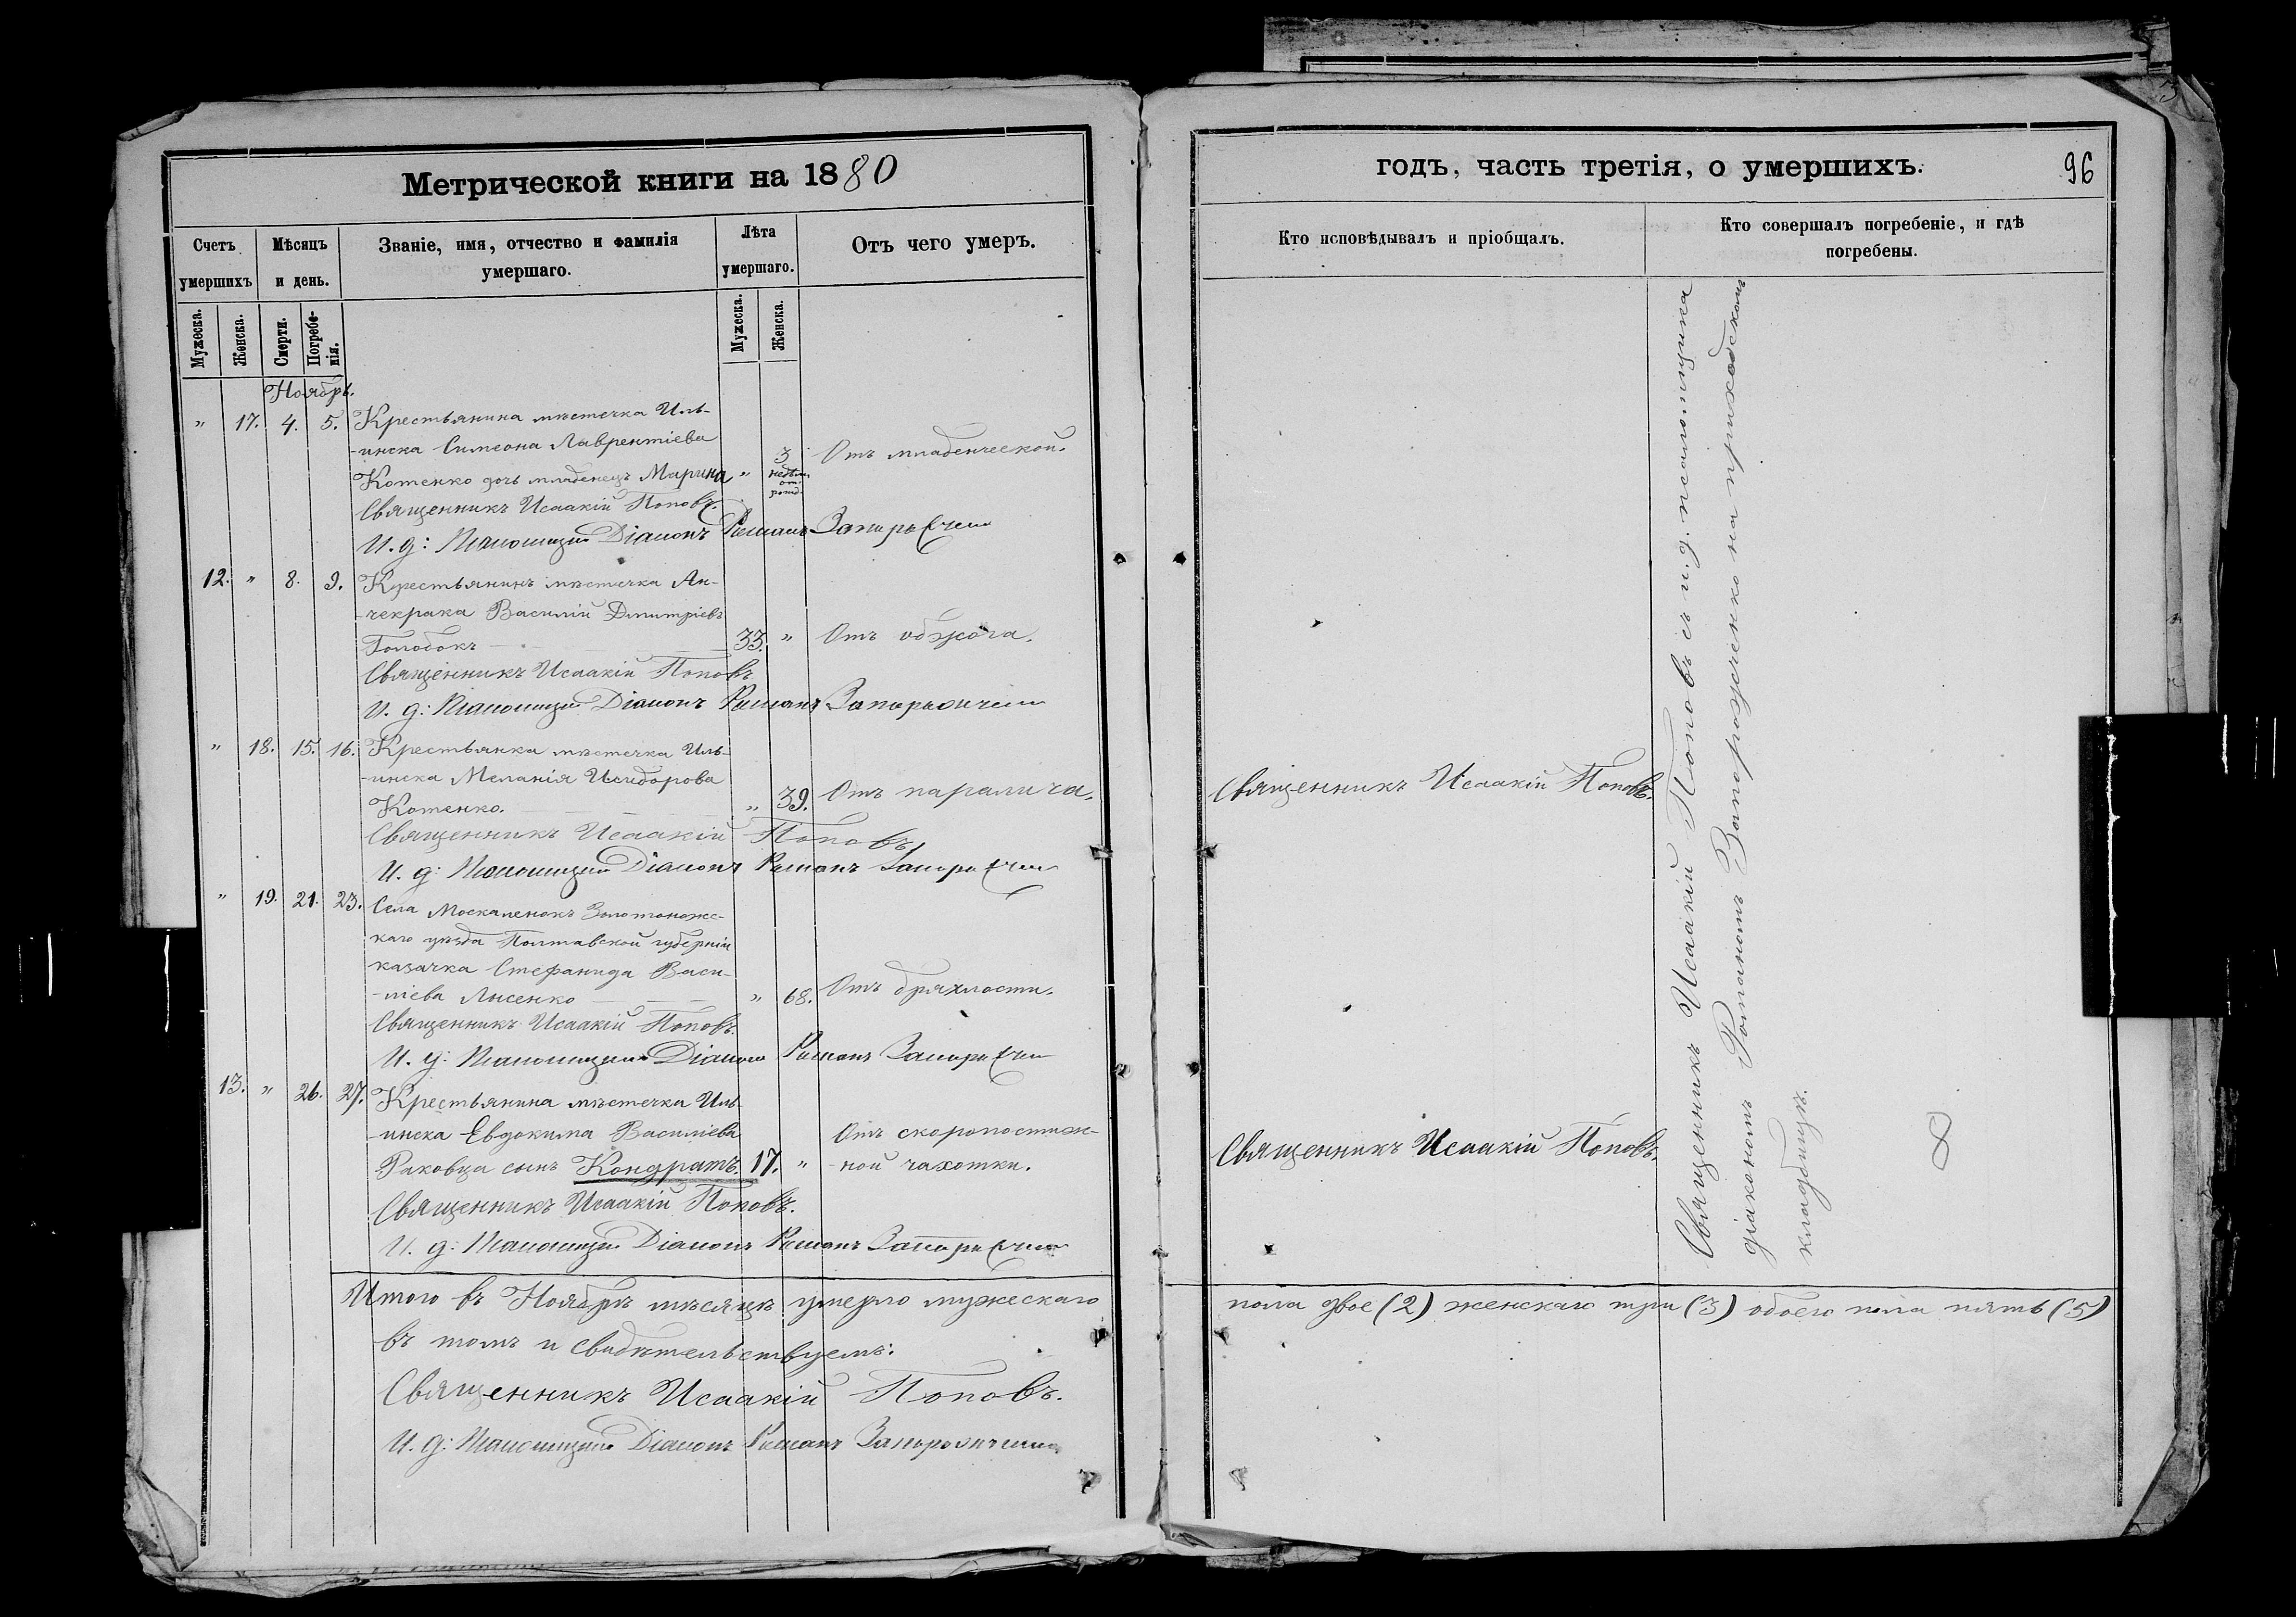 Метрической книги на 1880
Счетъ умершихъ
Мѣсяцъ и день.
Званіе, имя, отчество и фамилія умершаго.
Лѣта умершаго.
Отъ чего умеръ.
Мужеска.
Женска.
Смерти.
Погребенія.
Мужеска.
Женска.
Ноябрь.
" 17. 4. 5. Крестьянина мѣстечка Иль-
-инска Симеона Лаврентіева
Котенко дочь младенецъ Марина " 3 недѣли от рожд. Отъ младенческой.
Священникъ Исаакій Поповъ.
И. д: Псаломщика Діаконъ Романъ Запорожченко
12. " 8. 9. Крестьянинъ мѣстечка Ан-
-чекрака Василій Дмитріевъ
Голобокъ 33. " Отъ обжога.
Священникъ Исаакій Поповъ
И. д: Псаломщика Діаконъ Романъ Запорожченко
" 18. 15. 16. Крестьянка мѣстечка Иль-
-инска Меланія Исидорова
Котенко. " 39. Отъ паралича.
Священникъ Исаакій Поповъ
И. д: Псаломщика Діаконъ Романъ Запорожченко
" 19. 21. 23. Села Москаленокъ Золотонож-
каго уѣзда Полтавской губерніи
казачка Стефанида Васи-
-ліева Лисенко " 68. Отъ дряхлости.
Священникъ Исаакій Поповъ.
И. д: Псаломщика Діаконъ Романъ Запорожченко
13. " 26. 27. Крестьянина мѣстечка Иль-
-инска Евдокима Василіева
Раковца сынъ Кондратъ. 17. " Отъ скоропостиж-
-ной чахотки.
Священникъ Исаакій Поповъ.
И. д: Псаломщика Діаконъ Романъ Запорожченко
Итого въ Ноябрѣ мѣсяцѣ умерло мужескаго
въ томъ и свидѣтельствуемъ:
Священникъ Исаакій Поповъ.
И. д: Псаломщика Діаконъ Романъ Запорожченко
годъ, часть третія, о умершихъ.
96
Кто исповѣдывалъ и пріобщалъ.
Кто совершалъ погребеніе, и гдѣ погребены.
Священникъ Исаакій Поповъ.
Священникъ Исаакій Поповъ.
Священникъ Исаакій Поповъ съ и. д. псаломщика
діакономъ Романомъ Запорожченко на приходскомъ
кладбищѣ.
8
пола двое (2) женскаго три (3) обоего пола пять (5)